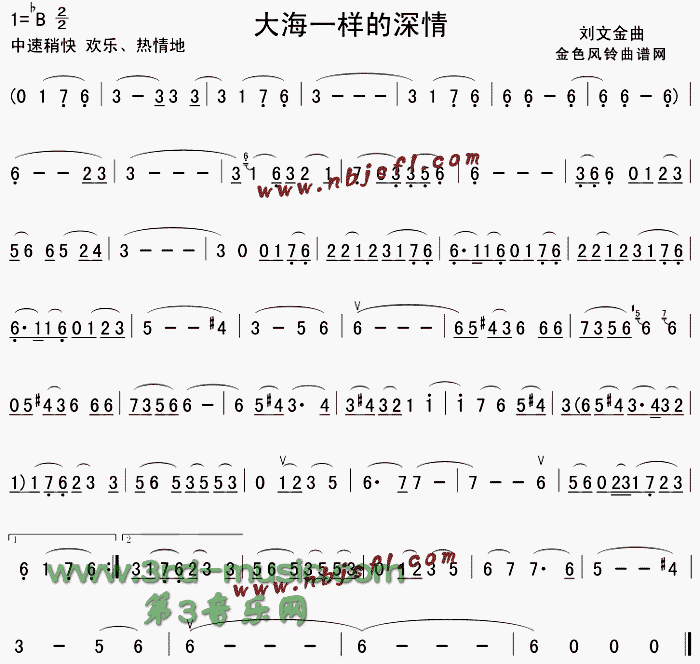 1=♭B 2/2
大海一样的深情
刘文金曲
中速稍快 欢乐、热情地
金色风铃曲谱网
(0 1 7 6 | 3 - 3 3 3 3 | 3 1 7 6 | 3 - - - | 3 1 7 6 | 6 6 - 6 | 6 6 - 6) |
6 - - 2 3 | 3 - - - | 3 6 1 6 3 2 1 | 7 0 3 3 5 6 | 6 - - - | 3 6 6 0 1 2 3
www.nbjsfl.com
5 6 6 5 2 4 | 3 - - - | 3 0 0 1 7 6 | 2 2 1 2 3 1 7 6 | 6· 1 1 6 0 1 7 6 | 2 2 1 2 3 1 7 6 |
6· 1 1 6 0 1 2 3 | 5 - - #4 | 3 - 5 6 | 6 - - - | 6 5 #4 3 6 6 6 | 7 3 5 6 5 6 7 6 |
0 5 #4 3 6 6 6 | 7 3 5 6 6 6 - | 6 5 #4 3· 4 | 3 #4 3 2 1 i | i 7 6 5 #4 | 3 (6 5 #4 3· 4 3 2 |
1) 1 7 6 2 3 3 | 5 6 5 3 5 5 3 | 0 1 2 3 5 | 6· 7 7 - | 7 - - 6 | 5 6 0 2 3 1 7 2 3 |
1 2
6 1 7 6 :| 3 1 7 6 2 3 3 | 5 6 5 3 5 5 3 | 0 1 2 3 5 | 6 7 7· 6 | 5 - - #4 |
www.3rd-music.com
www.nbjsfl.com
第3音乐网
3 - 5 6 | 6 - - - | 6 - - - | 6 0 0 0 ‖